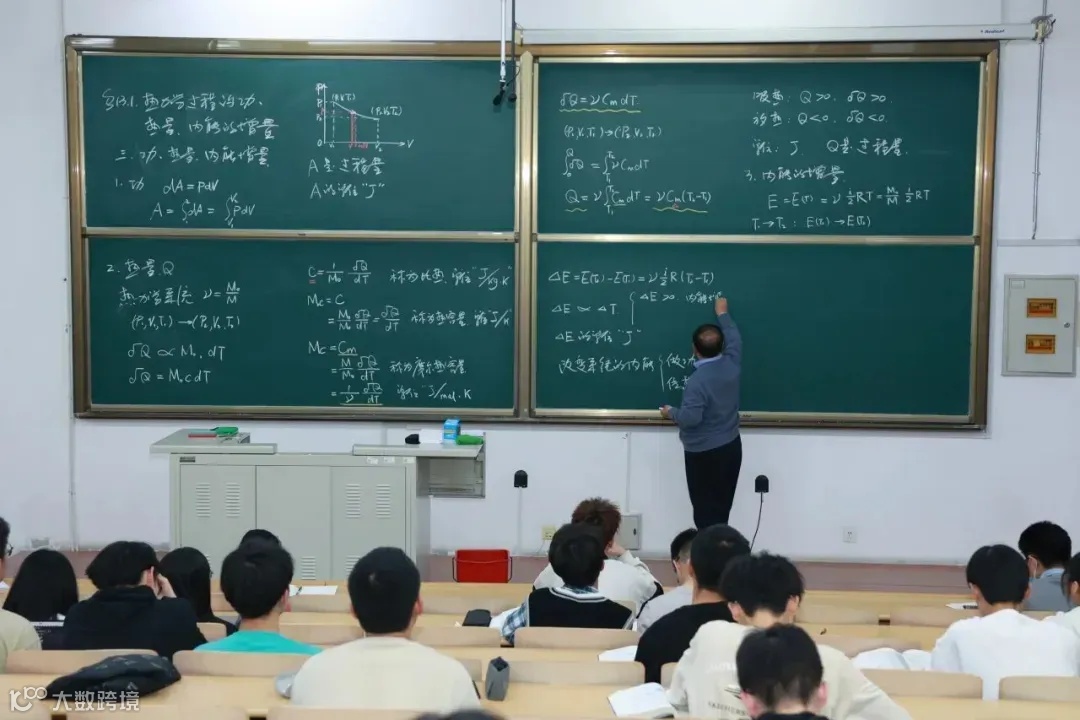 §13.1. 热力学过程的功、
热量、内能的增量
三. 功、热量、内能增量
1. 功 dA = PdV
A = ∫dA = ∫PdV
P
(P₁V₁T₁)
(P₂V₂T₂)
O
V
A是过程量
A的单位"J"
2. 热量 Q
热力学系统 ν = M₀/M
(P₁,V₁,T₁) → (P₂,V₂,T₂)
đQ ∝ M₀, dT
đQ = M₀cdT
C = 1/M₀ đQ/dT 称为比热, 单位"J/kg·K"
Mc = C
称为热容量, 单位"J/K"
Mc = Cm
= M/M₀ đQ/dT 称为摩尔热容量
= 1/ν đQ/dT 单位: "J/mol·K
đQ = νCmdT
(P₁V₁T₁) → (P₂,V₂,T₂)
∫đQ = ∫νCmdT
Q = ∫νCmdT = νCm(T₂-T₁)
吸热: Q>0, đQ>0.
放热: Q<0, đQ<0.
单位: J Q是过程量.
3. 内能的增量
E = E(T) = ν i/2 RT = M₀/M i/2 RT
T₁→T₂ : E(T₁)→E(T₂)
ΔE = E(T₂)-E(T₁) = ν i/2 R(T₂-T₁)
ΔE ∝ ΔT.
ΔE>0 内能
ΔE的单位"J"
改变系统的内能
做功
大数跨境